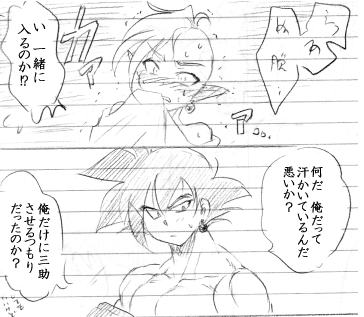 い 一緒に
入るのか!?
カァァ
ァ
何だ 俺だって
汗かいているんだ
悪いか?
俺だけに三助
させるつもり
だったのか?